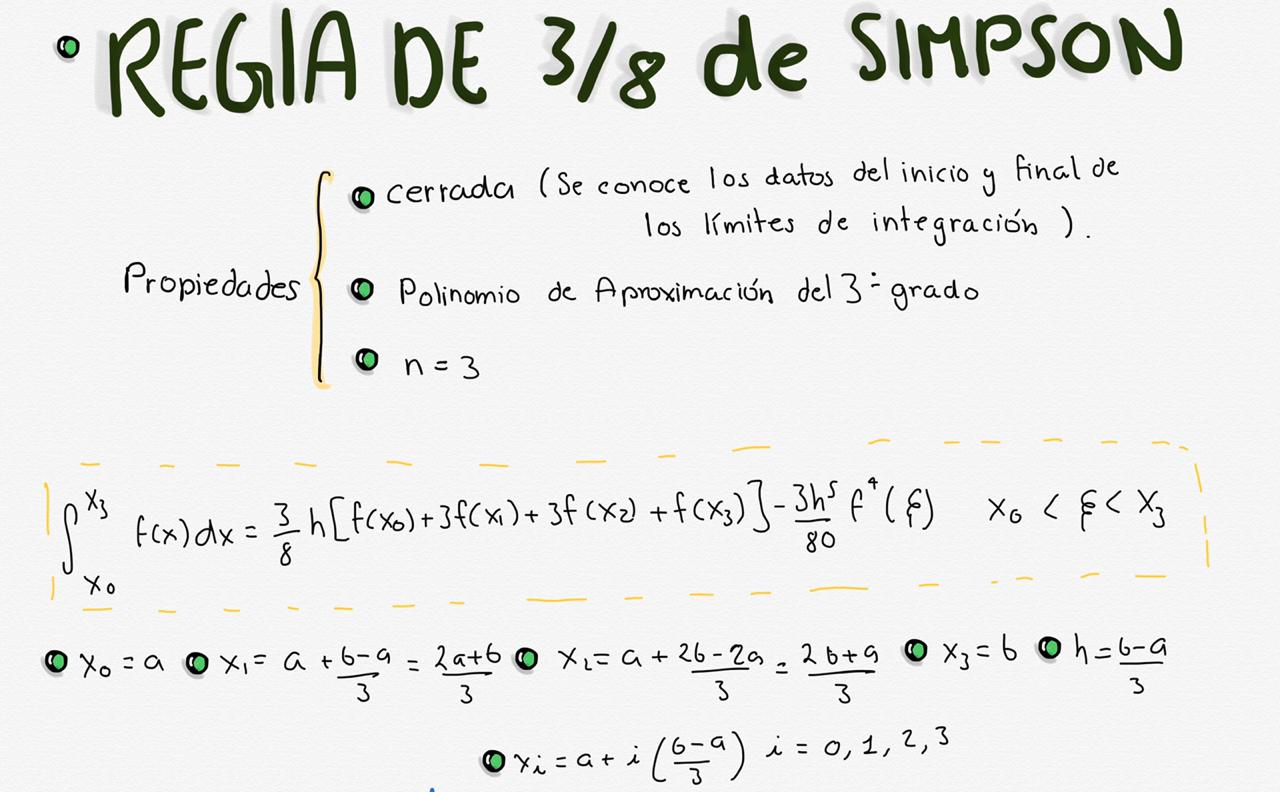 • REGLA DE 3/8 de SIMPSON
• cerrada (Se conoce los datos del inicio y final de
los límites de integración ).
Propiedades {
• Polinomio de Aproximación del 3er grado
• n = 3
∫_{x₀}^{x₃} f(x)dx = 3/8 h[f(x₀)+3f(x₁)+3f(x₂)+f(x₃)] - 3h⁵/80 f⁴(ξ)   x₀ < ξ < x₃
• x₀ = a • x₁ = a + (b-a)/3 = (2a+b)/3 • x₂ = a + (2b-2a)/3 = (2b+a)/3 • x₃ = b • h = (b-a)/3
• xi = a + i((b-a)/3) i = 0, 1, 2, 3